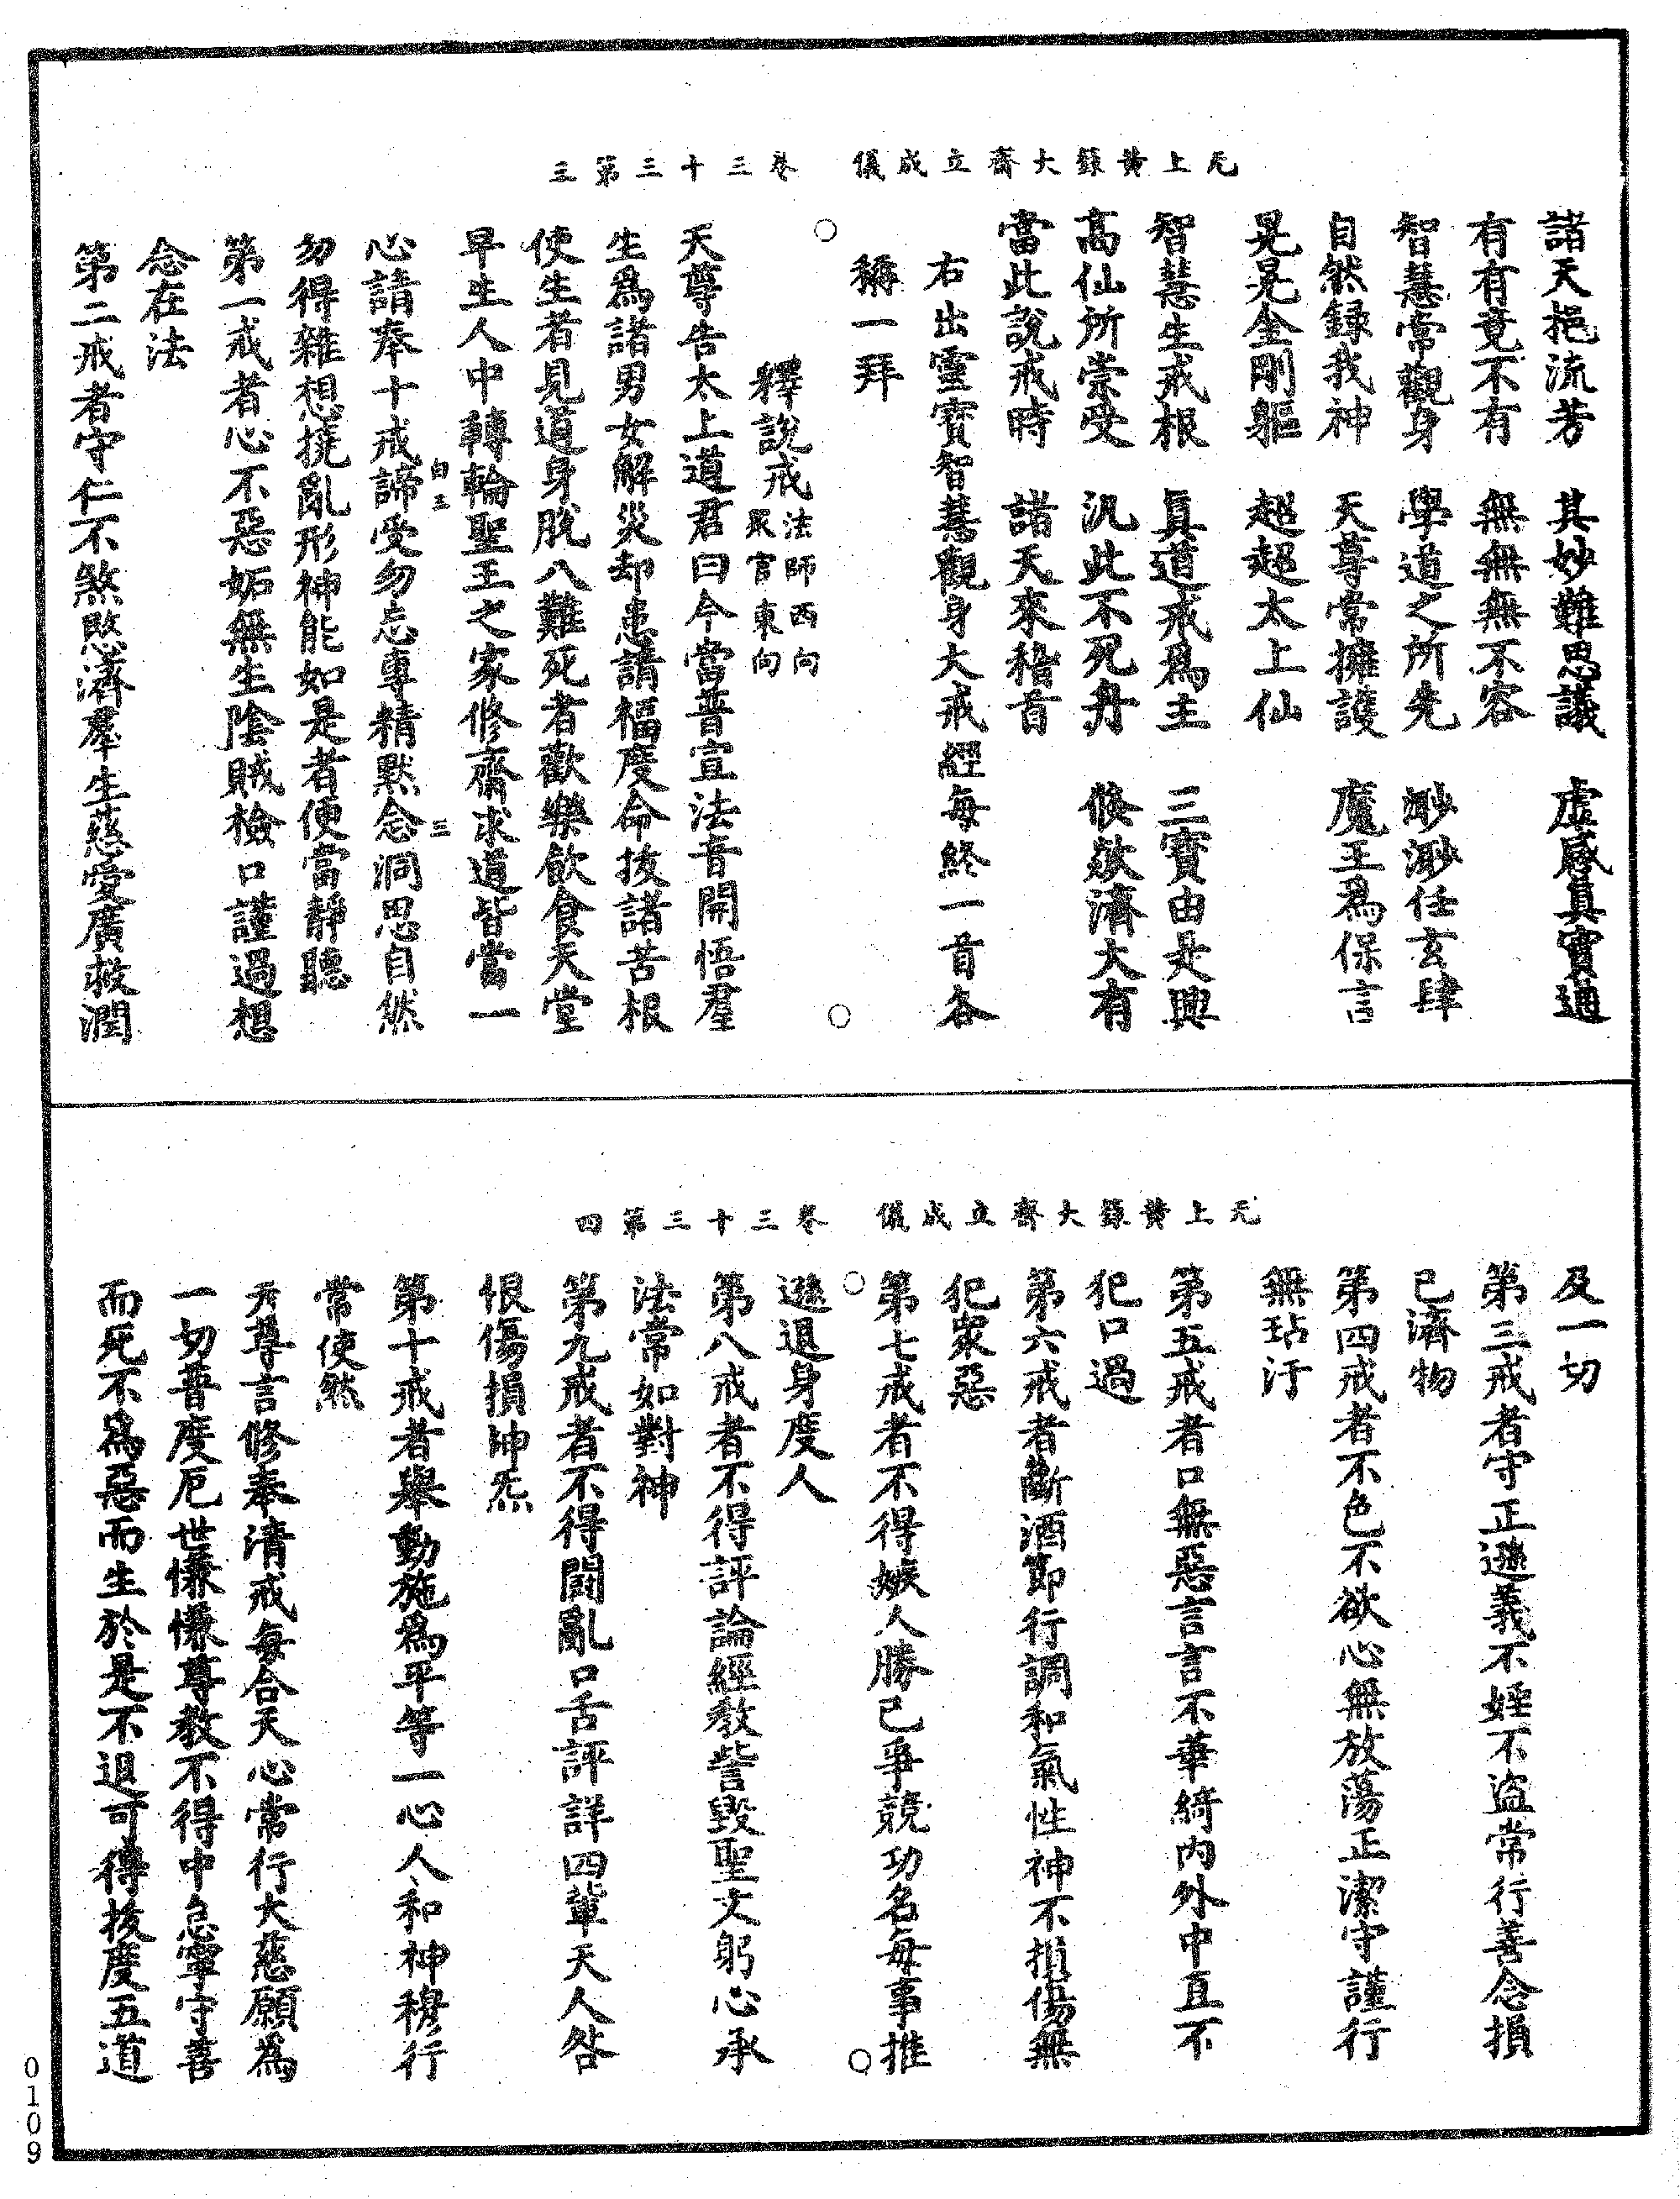 无上黃籙大齋立成儀 卷三十三第三
諸天挹流芳 其妙難思議 虛感真實通
有有竟不有 無無無不容
智慧常觀身 學道之所先 渺渺任玄肆
自然録我神 天尊常擁護 魔王為保言
晃晃金剛軀 超超太上仙
智慧生戒根 真道戒為主 三寶由是興
高仙所崇受 汎此不死舟 倏欻濟大有
當此說戒時 諸天來稽首
右出靈寶智慧觀身大戒經每終一首各
稱一拜
釋說戒 法師西向
衆官東向
天尊告太上道君曰今當普宣法音開悟羣
生爲諸男女解災却患請福度命拔諸苦根
使生者見道身脫八難死者歡樂飲食天堂
早生人中轉輪聖王之家修齋求道皆當一
心請奉十戒諦受勿忘專精默念洞思自然
勿得雜想撓亂形神能如是者便當靜聽
第一戒者心不惡妬無生陰賊檢口謹過想
念在法
第二戒者守仁不煞愍濟羣生慈愛廣救潤
白三 三
无上黃籙大齋立成儀 卷三十三第四
及一切
第三戒者守正遜義不婬不盜常行善念損
已濟物
第四戒者不色不欲心無放蕩正潔守謹行
無玷汙
第五戒者口無惡言言不華綺內外中直不
犯口過
第六戒者斷酒節行調和氣性神不損傷無
犯衆惡
第七戒者不得嫉人勝已爭競功名每事推
遜退身度人
第八戒者不得評論經教訾毀聖文躬心承
法常如對神
第九戒者不得鬪亂口舌評詳四輩天人咎
恨傷損神炁
第十戒者舉動施爲平等一心人和神穆行
常使然
天尊言修奉清戒每合天心常行大慈願為
一切普度厄世慊慊尊教不得中怠寧守善
而死不爲惡而生於是不退可得拔度五道
0109